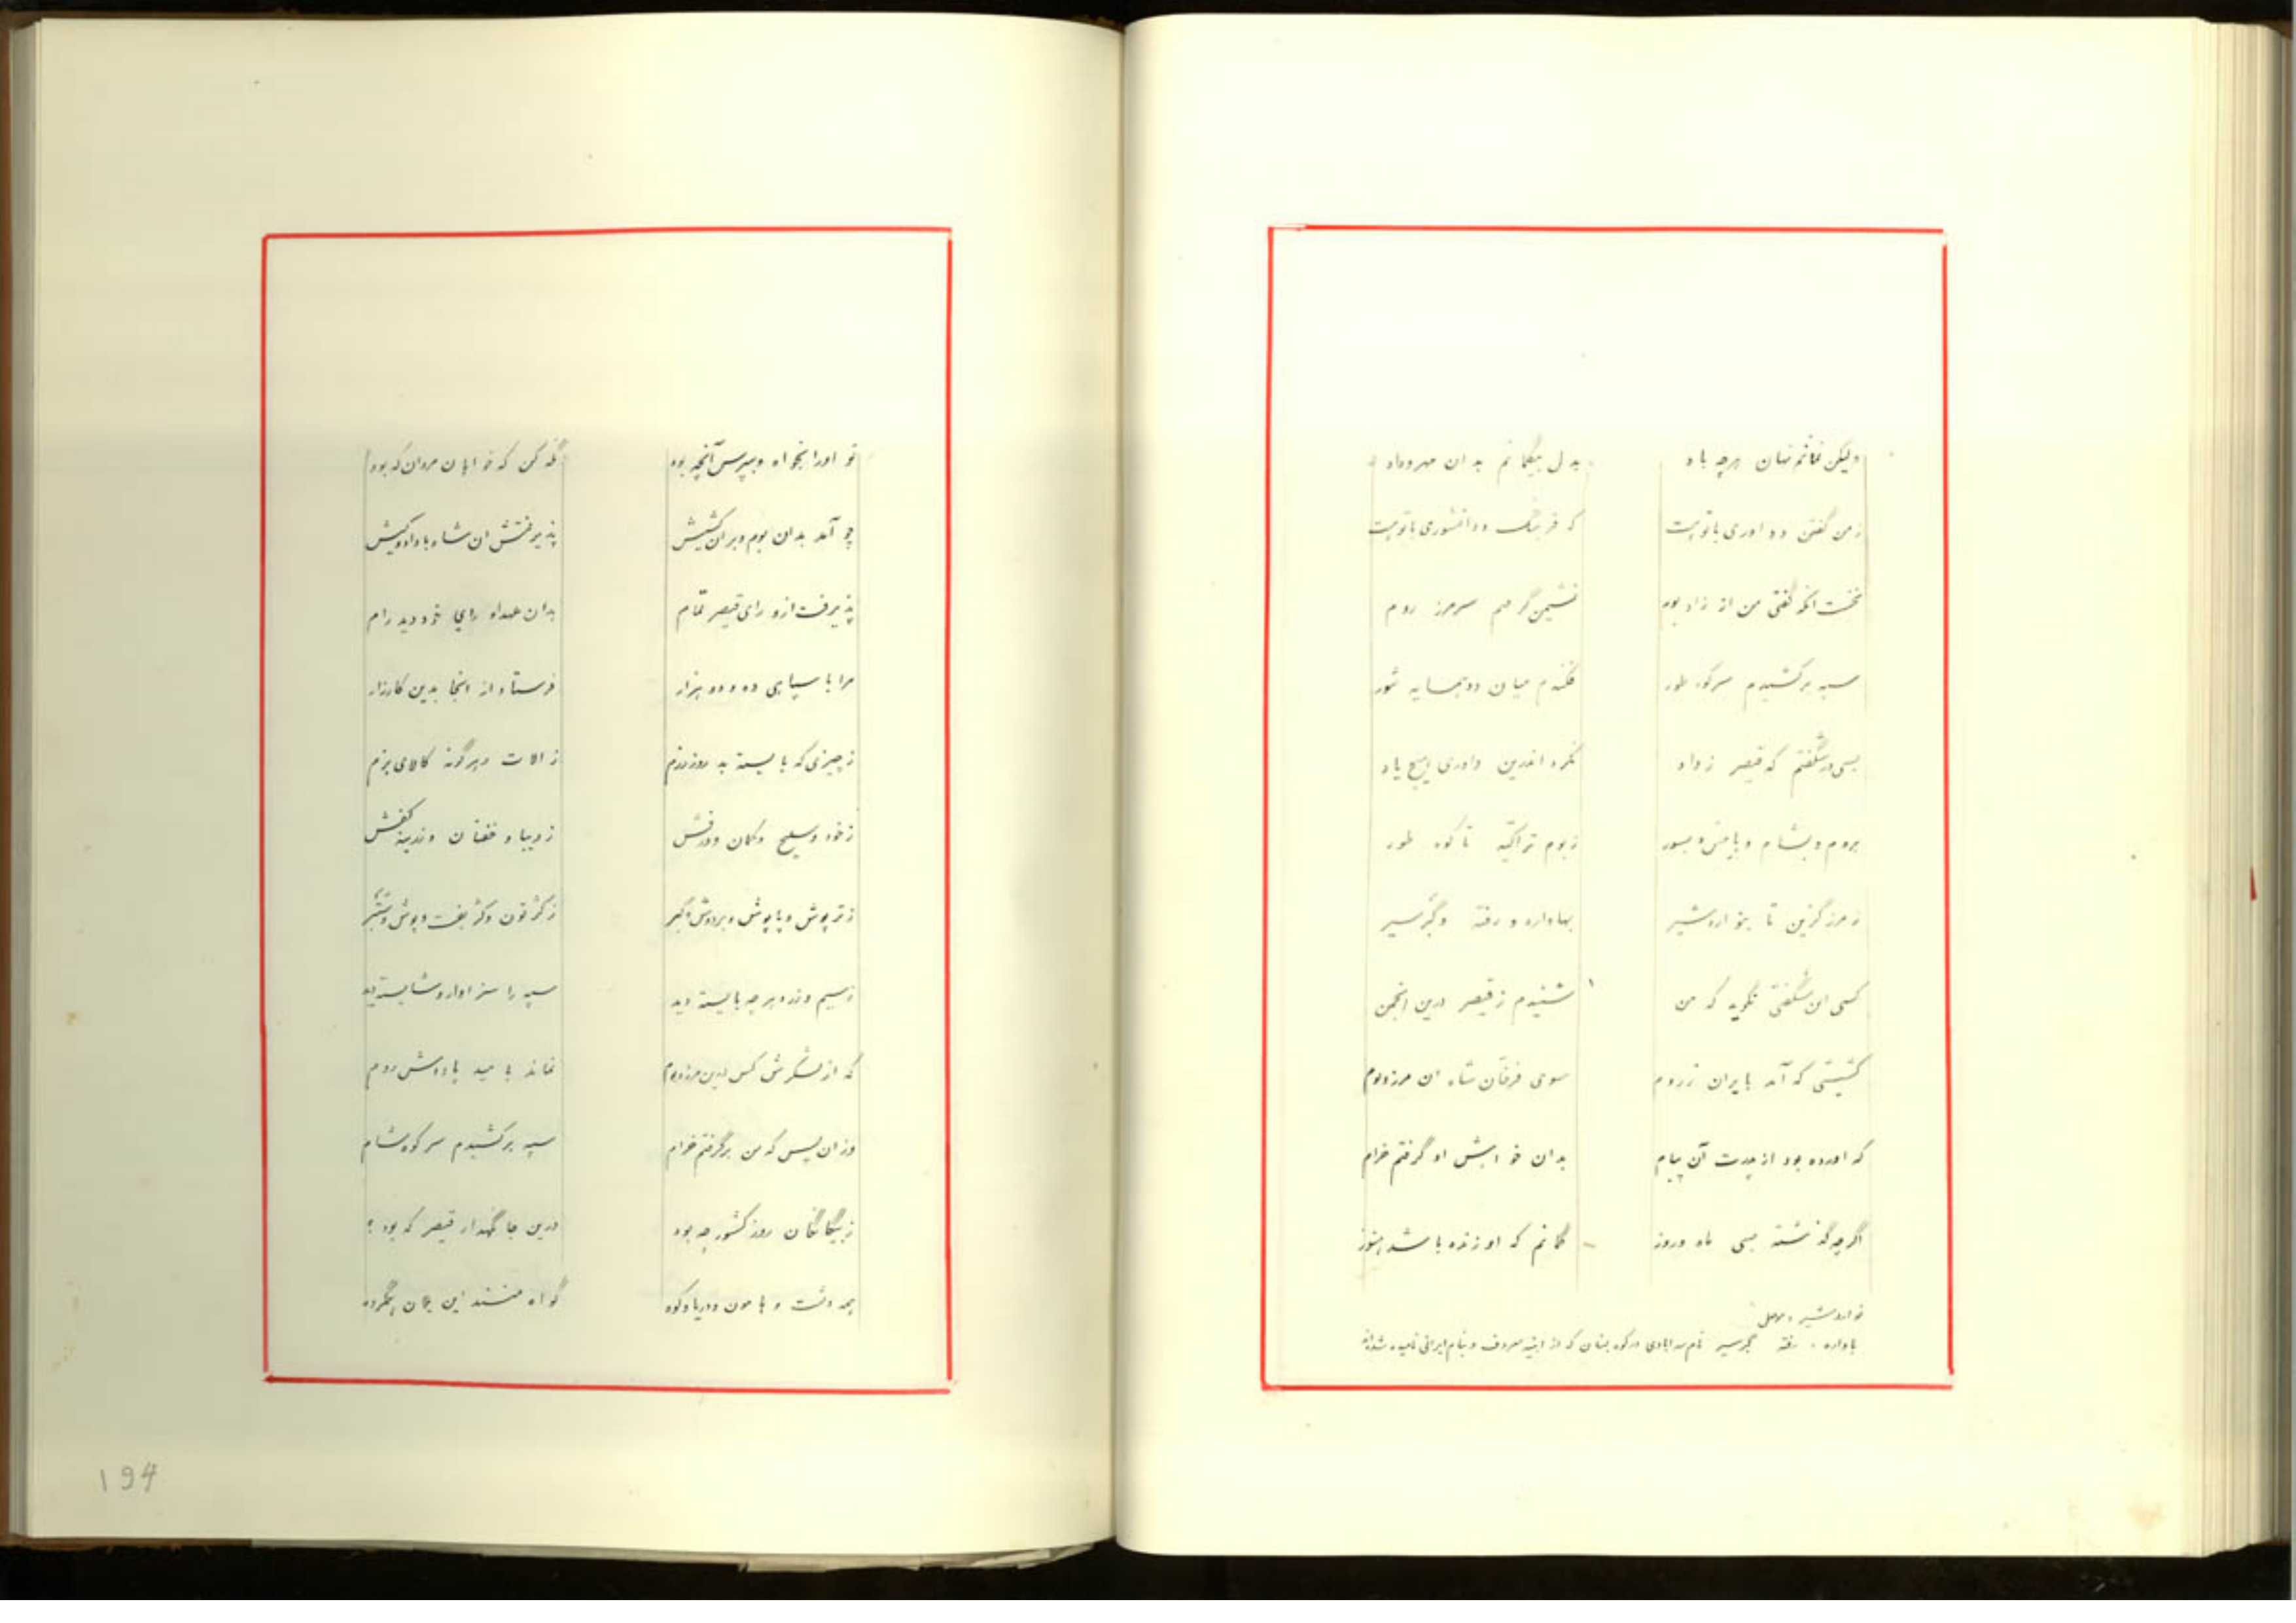 ولیکن نمانم نهان هرچه باد بدل بیگمانم بدان مهر و داد
ز من گفتن و داوری با تو است که فرهنگ و دانشوری با تو است
نخست آنکه گفتی من از زاد بوم نشیمن گرهم سر مرز روم
سپه برکشیدم سر کوه طور فکندم میان دو همسایه شور
بسی در شگفتم که قیصر ز داد نکرد اندرین داوری هیچ یاد
بروم و بشام و سور ز بوم تا کوه طور
ز مرز گزین تا بهاداره و رفته و گبرسیر
کسی این شگفتی نگوید که من شنیدم ز قیصر درین انجمن
کشیشی که آمد بایران ز روم سوی فرقان شاه ان مرز و بوم
که اورده بود از پدرت آن پیام بدان خواهش او گرفتم خرام
اگرچه گذشته بسی ماه و روز گمانم که او زنده باشد هنوز
موصل
باداره . رفته گبرسیر نام سه ابادی در کوه لبنان که از ابنیه معروف و بنام ایرانی نامیده شده‌اند
تو اورا بخواه و بپرس آنچه بود نگه کن که خواهان مروان که بود
چو آمد بدان بوم و بر ان کشیش پذیرفتش ان شاه با داد و کیش
پذیرفت ازو رای قیصر تمام بدان عهد او رای خود دید رام
مرا با سپاهی ده و دو هزار فرستاد از انجا بدین کارزار
ز چیزی که بایسته بد روز رزم ز الات و هرگونه کالای بزم
ز خود و سلیح و کمان و درفش ز دیبا و خفتان و زرینه کفش
ز ترپوش و پاپوش و
ز سیم و زر و هرچه بایسته دید سپه را سزاوار و شایسته دید
که از لشکرش کس درین مرز و بوم نماند بامید پاداش روم
وزان پس که من برگرفتم خرام سپه برکشیدم سر کوه شام
ز بیگانگان روز کشور چه بود درین جا نگهدار قیصر که بود ؟
همه دشت و هامون و دریا و کوه گواه منستند این همگروه
194